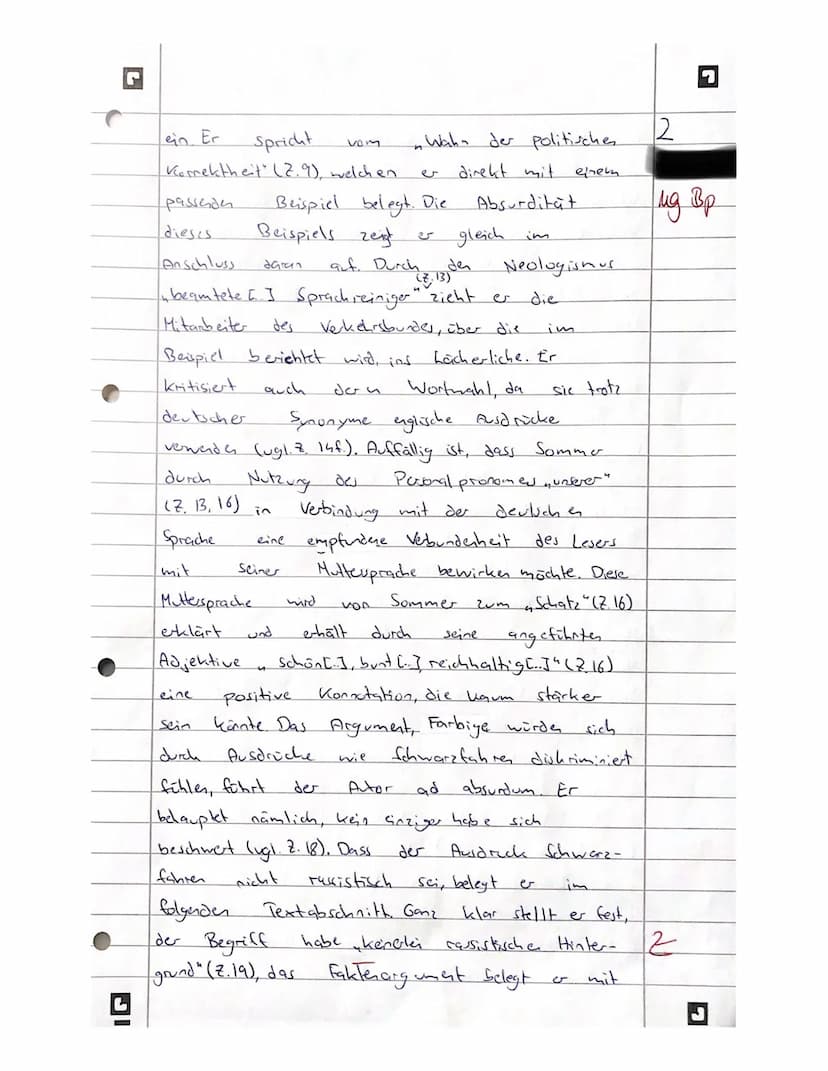 ein. Er spricht vom „Wahn der politischen
2
Korrektheit" (Z. 9), welchen er direkt mit einem
passenden Beispiel belegt. Die Absurdität
ug Bp
dieses Beispiels zeigt er gleich im
Anschluss daran auf. Durch den Neologismus
(Z. 13)
„beamtete [..] Sprachreiniger" zieht er die
Mitarbeiter des Verkehrsbundes, über die im
Beispiel berichtet wird, ins Lächerliche. Er
kritisiert auch deren Wortwahl, da sie trotz
deutscher Synonyme englische Ausdrücke
verwenden (vgl. Z. 14f.). Auffällig ist, dass Sommer
durch Nutzung des Personalpronomens „unserer"
(Z. 13, 16) in Verbindung mit der deutschen
Sprache eine empfundene Verbundenheit des Lesers
mit seiner Muttersprache bewirken möchte. Diese
Muttersprache wird von Sommer zum „Schatz" (Z. 16)
erklärt und erhält durch seine angeführten
Adjektive „schön[..], bunt[..] reichhaltig[..]" (Z. 16)
eine positive Konnotation, die kaum stärker
sein könnte. Das Argument, Farbige würden sich
durch Ausdrücke wie Schwarzfahren diskriminiert
fühlen, führt der Autor ad absurdum. Er
behauptet nämlich, kein einziger habe sich
beschwert (vgl. Z. 18). Dass der Ausdruck Schwarz-
fahren nicht rassistisch sei, belegt er im
folgenden Textabschnitt. Ganz klar stellt er fest,
der Begriff habe „keinerlei rassistischen Hinter-
2
grund" (Z. 19), das Faktenargument belegt er mit